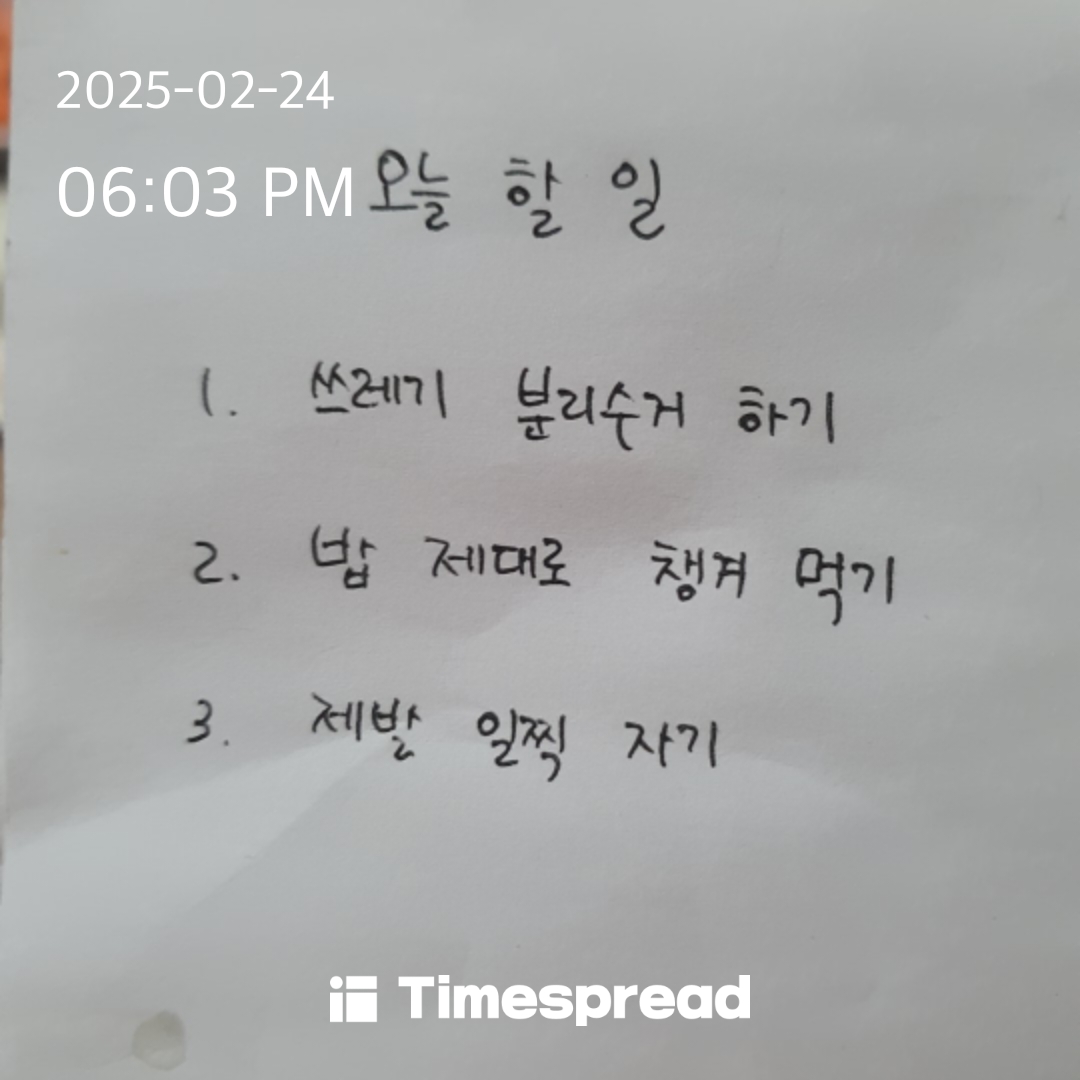 2025-02-24
06:03 PM
오늘 할 일
1. 쓰레기 분리수거 하기
2. 밥 제대로 챙겨 먹기
3. 제발 일찍 자기
Timespread